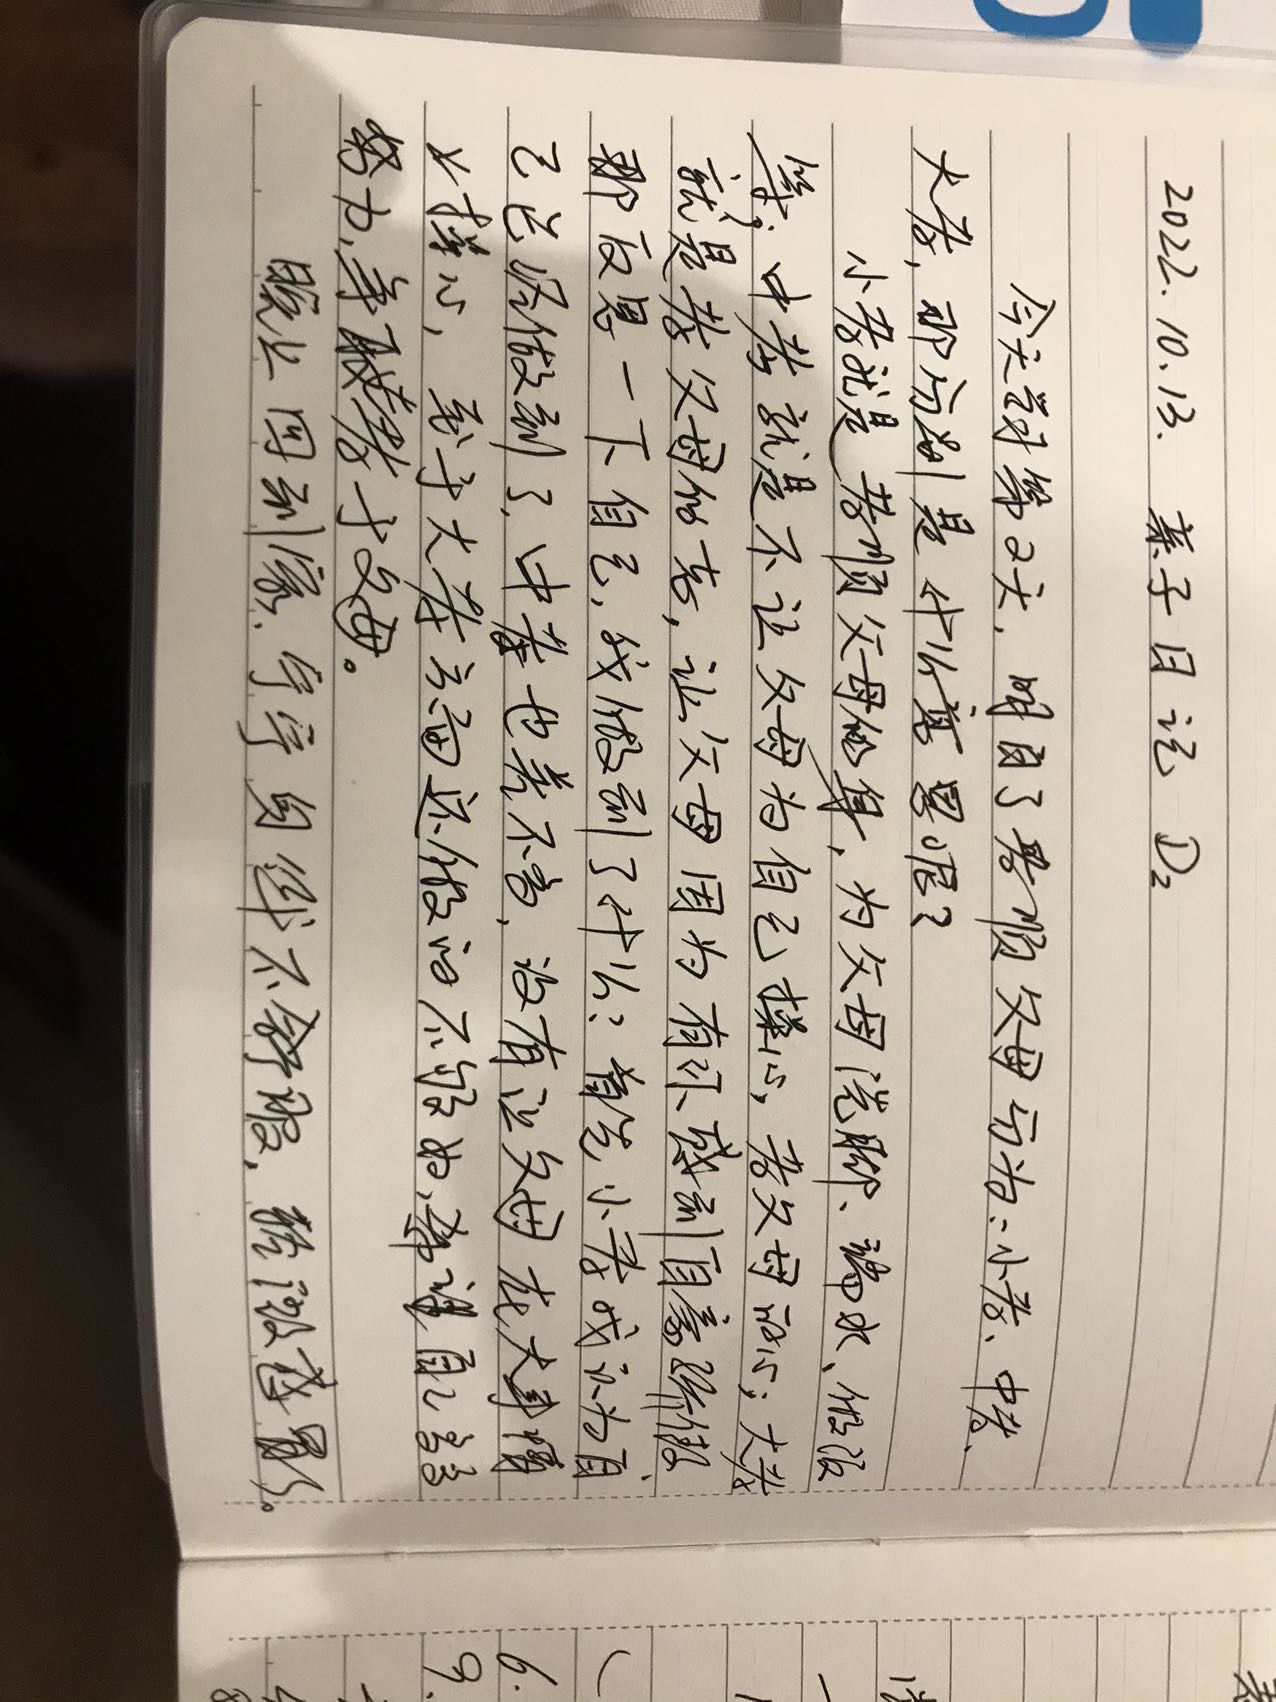 2022.10.13. 亲子日记 D2
今天学习第2天，明白了孝顺父母分为：小孝、中孝、
大孝，那分别是什么意思呢？
小孝就是孝顺父母的身，为父母洗脚、端水、做饭
等；中孝就是不让父母为自己操心，孝父母的心；大孝
就是孝父母的志，让父母因为有你感到自豪骄傲
那反思一下自己，我做到了什么：首先小孝我认为自
己已经做到了，中孝也差不多，没有让父母在大事情
上操心，至于大孝方面还做的不够好，希望自己
努力，争取孝于父母。
晚上回到家，宇宇